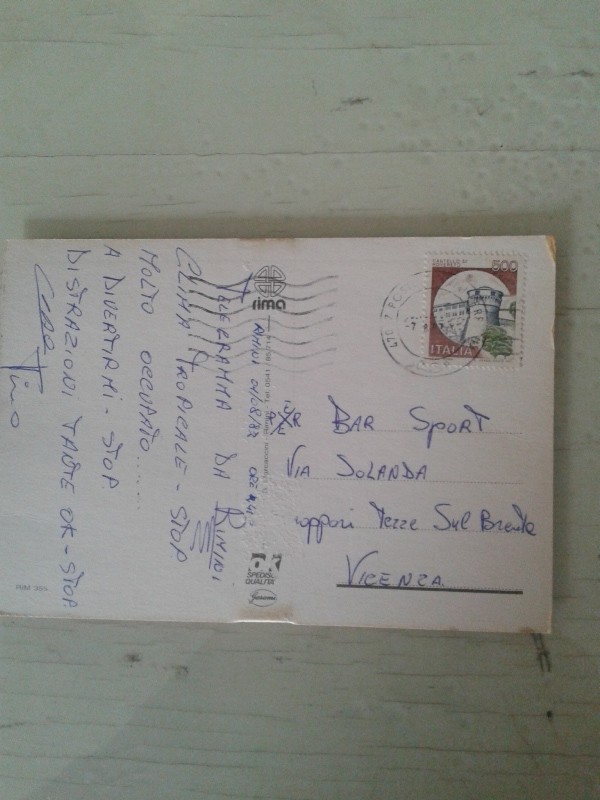 TELEGRAMMA DA RIMINI
CLIMA TROPICALE - STOP
MOLTO OCCUPATO......
A DIVERTIRMI - STOP.
DISTRAZIONI TANTE OK - STOP
CIAO Tino
rima
RIMINI
ORE
BAR SPORT
VIA JOLANDA
Tezze Sul Brenta
VICENZA
500
ITALIA
CASTELLO DI
OK
SPEDISCI
QUALITÀ